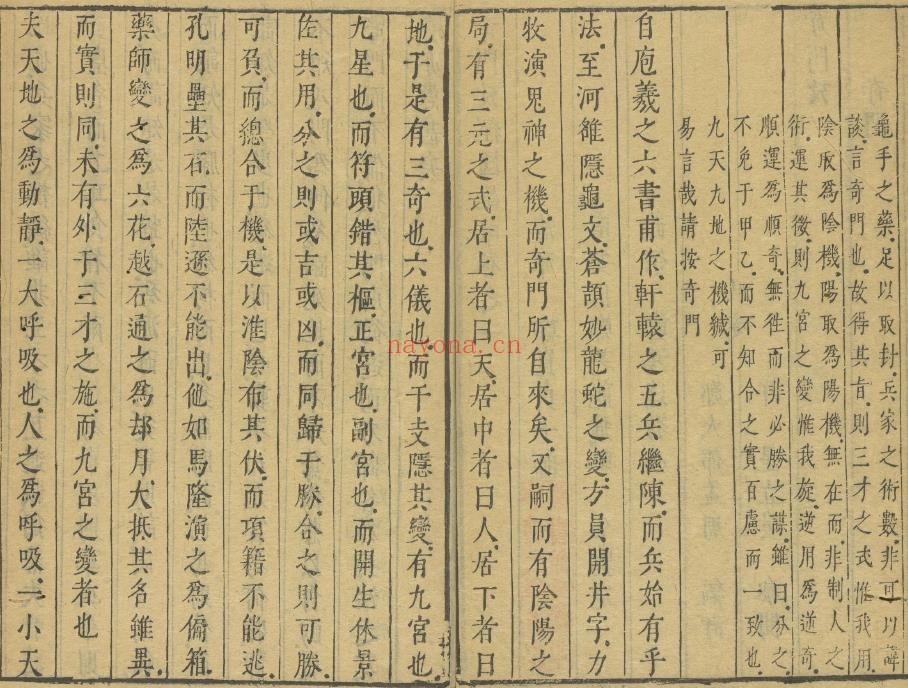 龜手之藥足以取封兵家之術數非可以諱
談言奇門也故得其旨則三才之式惟我用
陰取爲陰機陽取爲陽機無在而非制人之
術運其微則九宮之變惟我旋逆用爲逆奇
順運爲順奇無徃而非必勝之謀雖曰分之
不免于甲乙而不知合之實百慮而一致也
九天九地之機緘可
易言哉請按奇門
自庖羲之六書甫作軒轅之五兵繼陳而兵始有乎
法至河雒隱龜文蒼頡妙龍蛇之變方員開井字力
牧演鬼神之機而奇門所自來矣又嗣而有陰陽之
局有三元之式居上者曰天居中者曰人居下者曰
地于是有三奇也六儀也而干支隱其變有九宮也
九星也而符頭錯其樞正宮也副宮也而開生休景
佐其用分之則或吉或凶而同歸于勝合之則可勝
可負而總合于機是以淮陰布其伏而項籍不能逃
孔明壘其石而陸遜不能出他如馬隆演之爲偏箱
藥師變之爲六花越石通之爲却月大抵其名雖異
而實則同未有外于三才之施而九宮之變者也
夫天地之爲動靜一大呼吸也人之爲呼吸一小天
nayona.cn